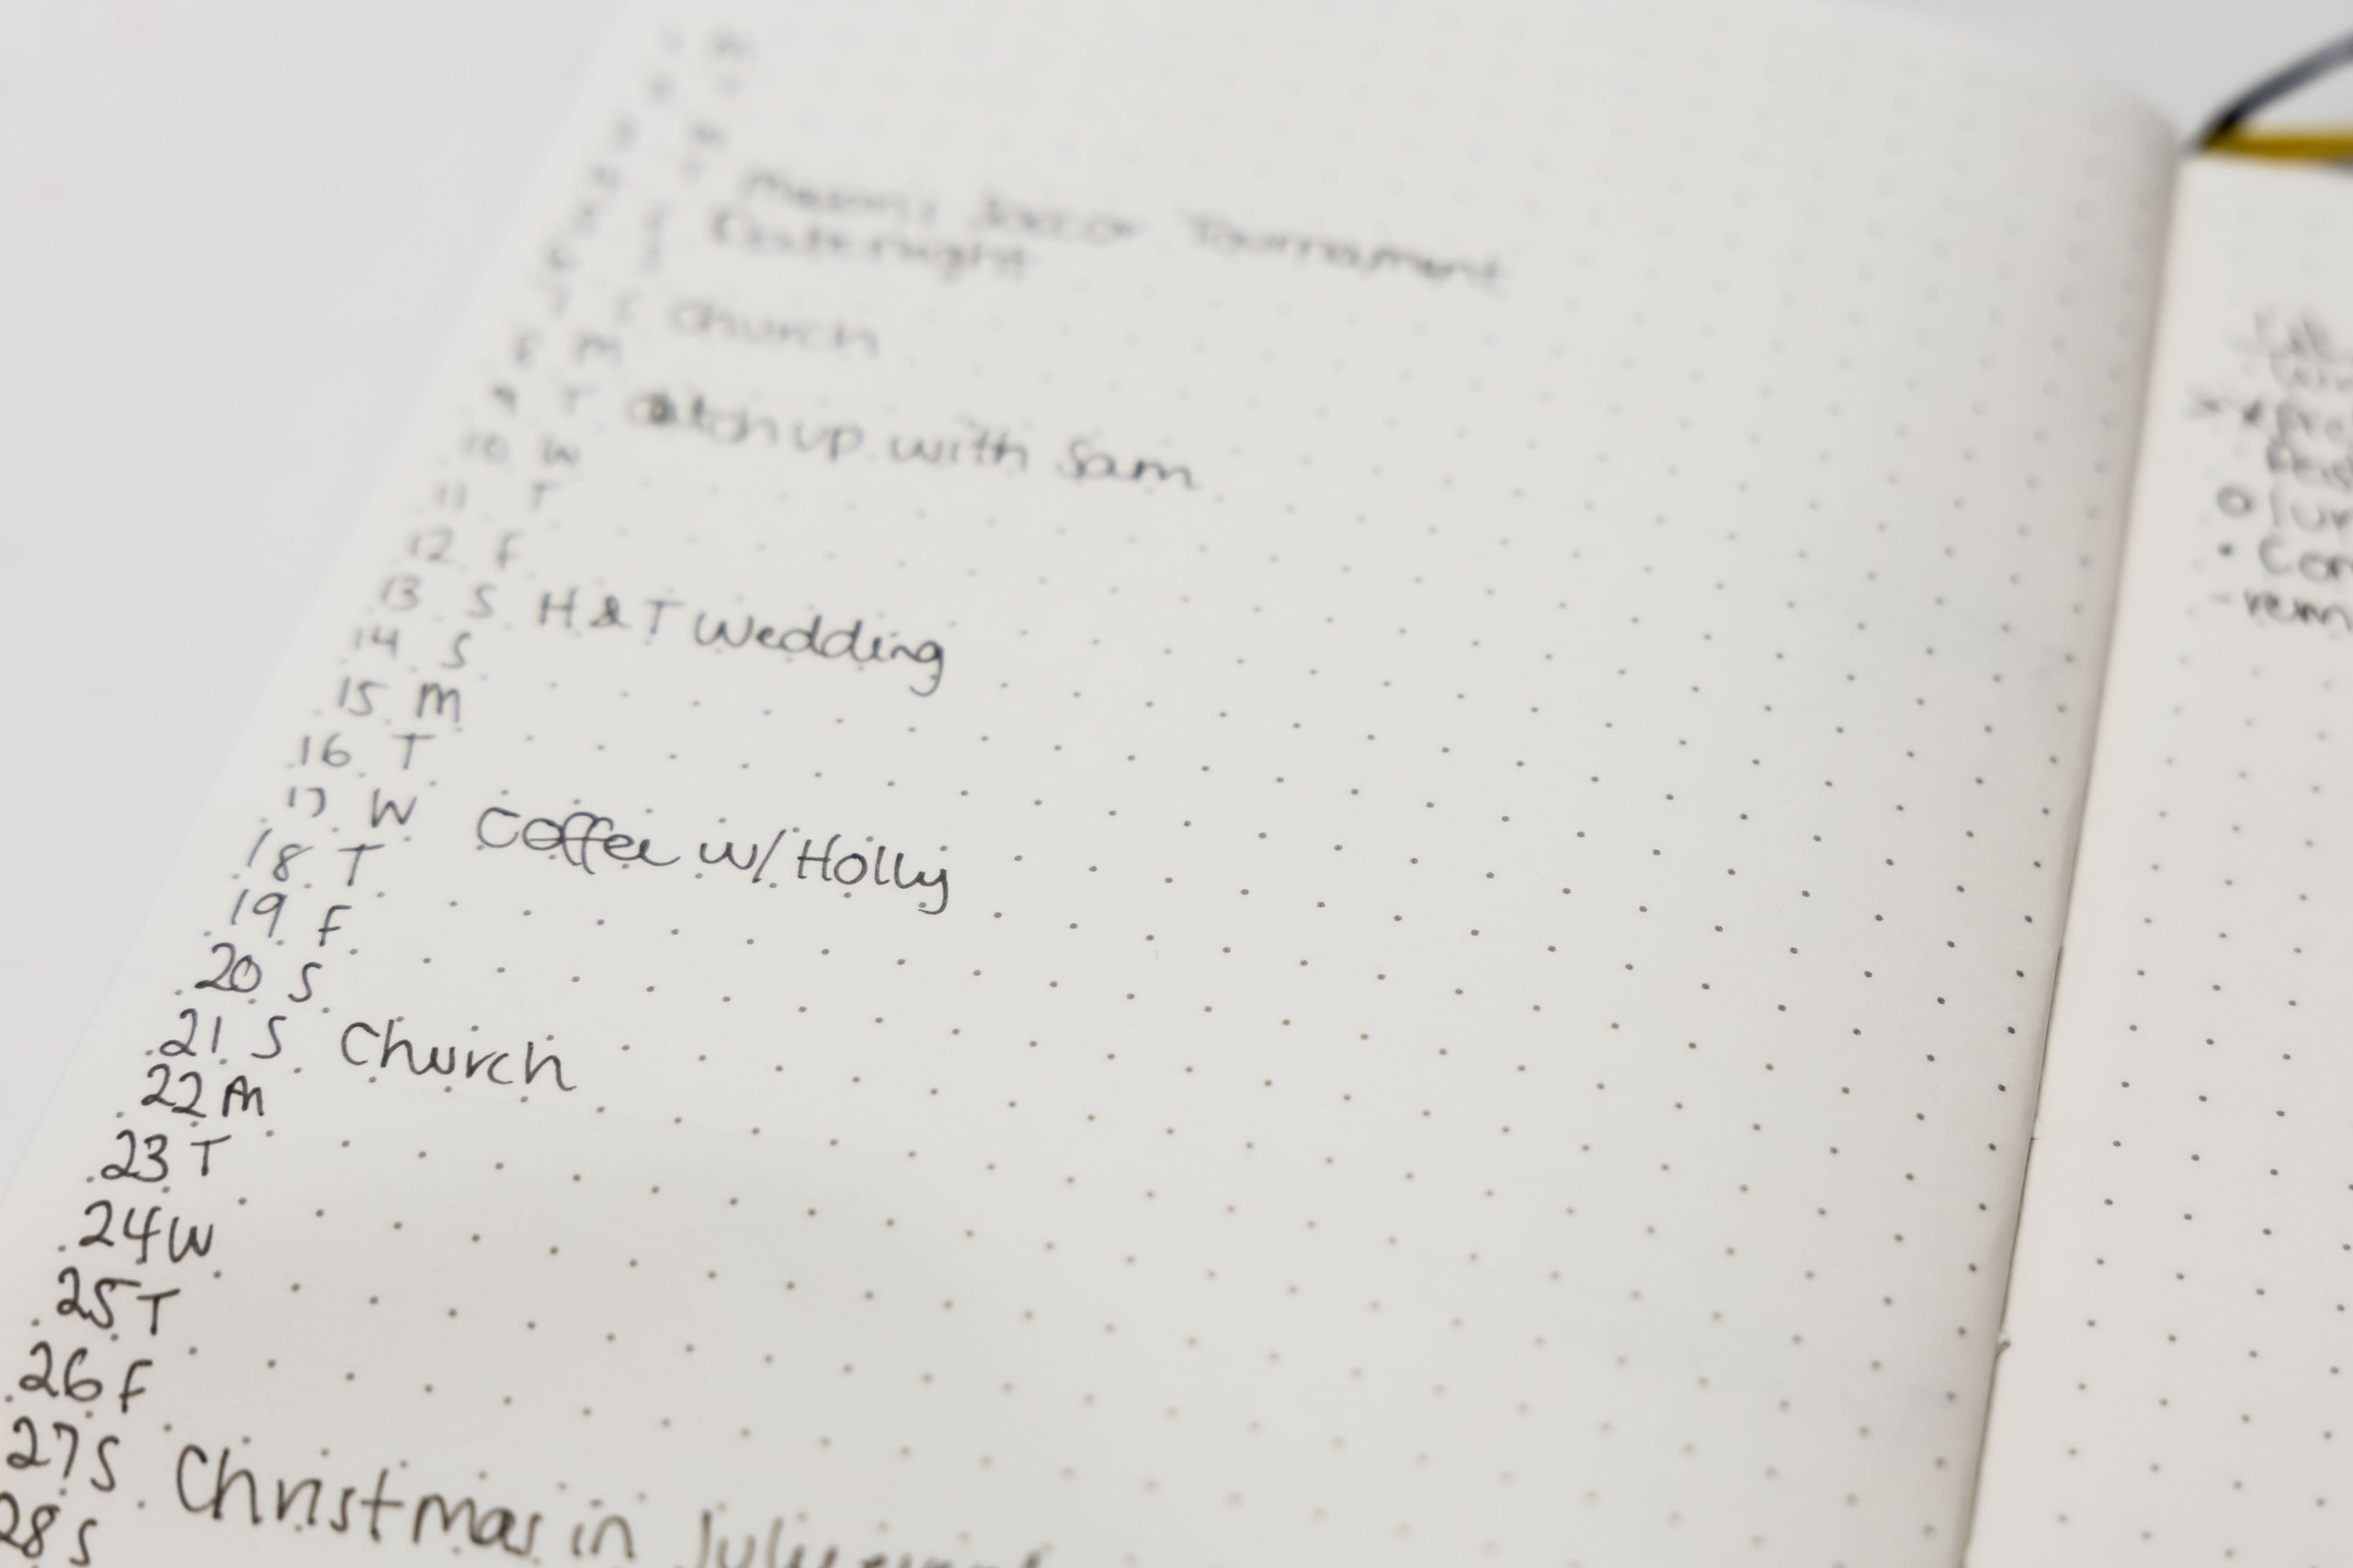 3
4 T Mason's Soccer Tournament
5 F Date night
6 S
7 S Church
8 M
9 T Catch up with Sam
10 W
11 T
12 F
13 S H & T Wedding
14 S
15 M
16 T
17 W Coffee w/ Holly
18 T
19 F
20 S
21 S Church
22 M
23 T
24 W
25 T
26 F
27 S Christmas in July
28 S